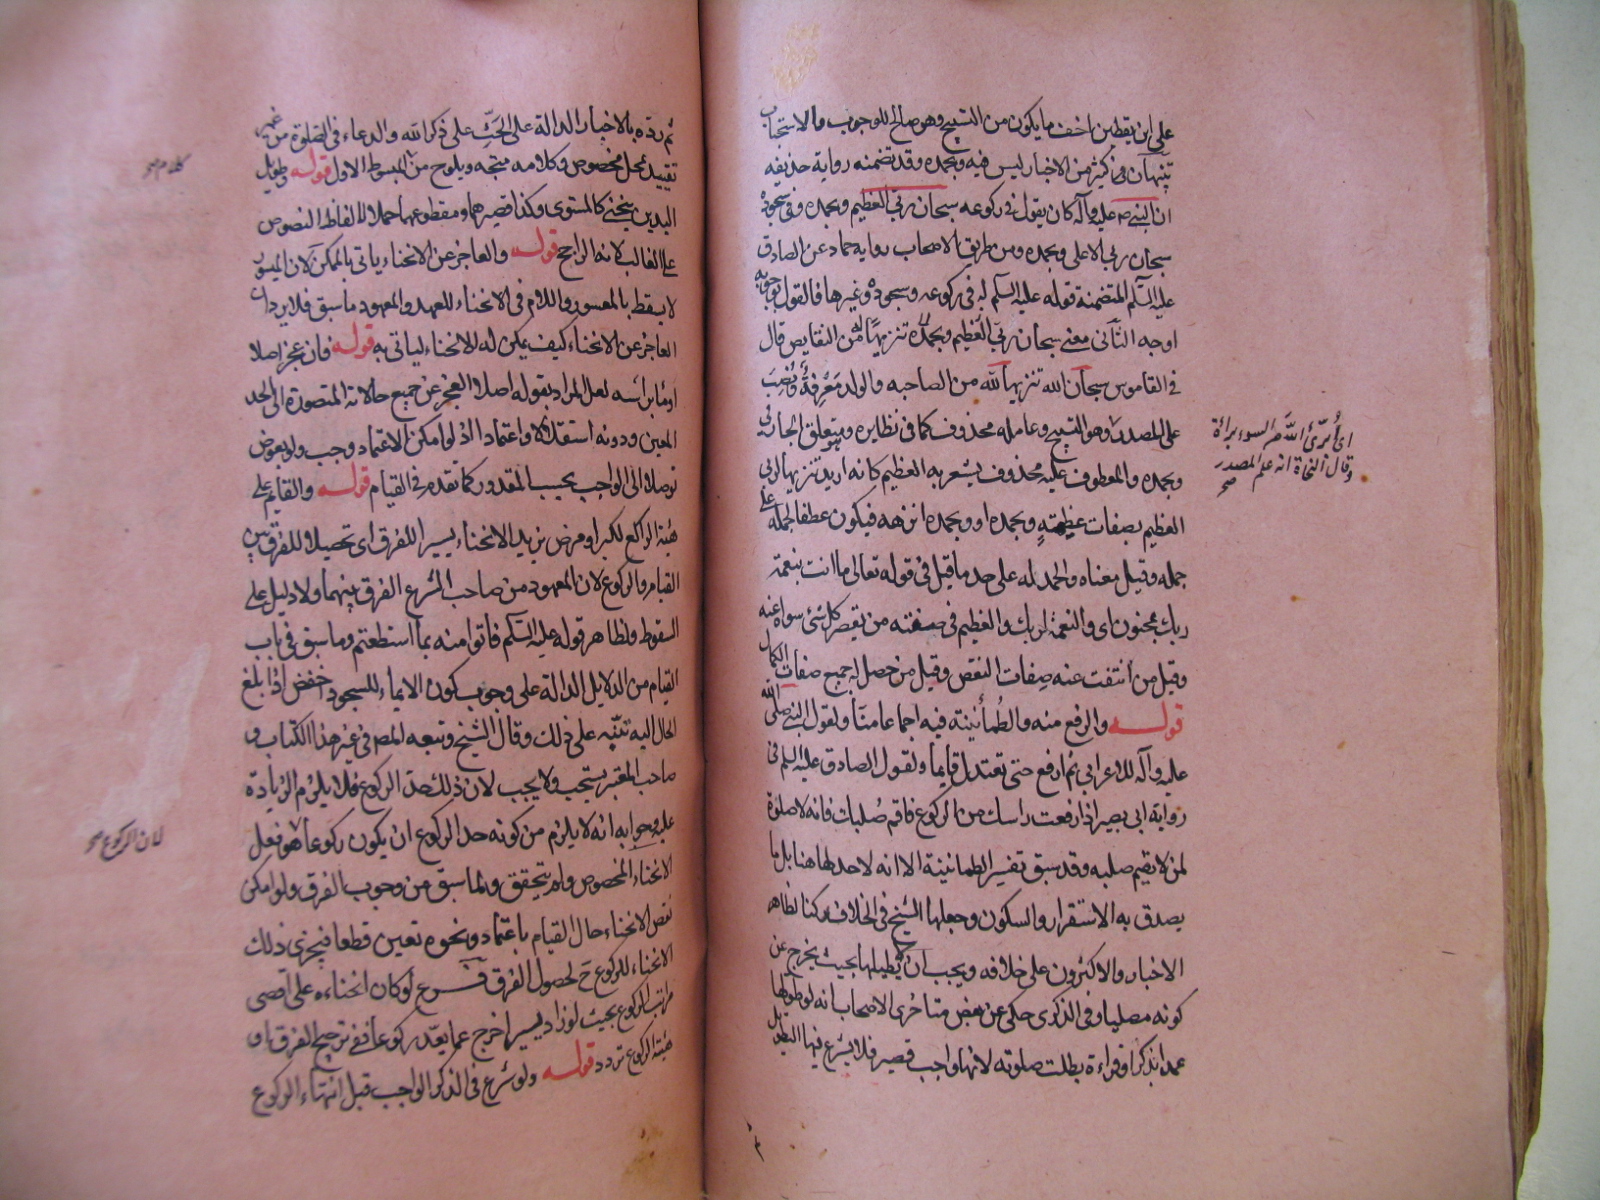 على ابن يقطين اخف ما يكون من التسبيح وهو صالح للوجوب والاستحباب
تنبيهان في كثير من الاخبار ليس فيه وبحمده وقد تضمنه رواية حذيفه
ان النبي صلى الله عليه وآله كان يقول في ركوعه سبحان ربي العظيم وبحمده وفي سجوده
سبحان ربي الاعلى وبحمده ومن طريق الاصحاب رواية حماد عن الصادق
عليه السلم المتضمنة قوله عليه السلم له في ركوعه وسجوده وغيرها فالقول بوجوبه
اوجه الثاني معنى سبحان ربي العظيم وبحمده تنزيهًا له من النقايص قال
في القاموس سبحان الله تنزيها لله من الصاحبه والولد مَعْرِفةٌ ونُصِبَ
على المصدر وهو التسبيح وعامله محذوف كما في نظايره ومتعلق الجار في
وبحمده والمعطوف عليه محذوف يشعر به العظيم كانه اريد تنزيها لربي
العظيم بصفات عظمته وبحمده او وبحمده انزهه فيكون عطفا لجمله على
جمله وقيل معناه والحمد له على حد ما قيل في قوله تعالى ما انت بنعمة
ربك بمجنون اى والنعمة لربك والعظيم في صفته من يقصر كل شئ سواه عنه
وقيل من انتفت عنه صِفات النقص وقيل من حصل له جميع صفات الكمال
قوله والرفع منه والطُمأنينة فيه اجماعا منّا ولقول النبي صلى الله
عليه وآله للاعرابي ثم ارفع حتى تعتدل قايما ولقول الصادق عليه السلم في
رواية ابي بصير اذا رفعت راسك من الركوع فاقم صُلبك فانه لا صلوة
لمن لا يقيم صلبه وقد سبق تفسير الطمانينة الا انه لا حد لها هنا بل ما
يصدق به الاستقرار والسكون وجعلها الشيخ في الخلاف ركنا لظاهر
الاخبار والاكثرون على خلافه ويجب ان لا يطيلها بحيث يخرج عن
كونه مصليا وفي الذكرى حكى عن بعض متاخرى الاصحاب انه لو طولها
عمدا بذكر او قراءة بطلت صلوته لانها واجب قصير فلا يشرع فيها التطويل
اى أُبَرِّئُ اللهَ من السوء براءة
وقال النحاة انه علم المصدر
صح
ثم ردّه بالاخبار الدالة على الحَثّ على ذكر الله والدعاء في الصلوة من غير
تقييد بمحل مخصوص وكلامه متجه ويلوح من المبسوط الاول قوله وطويل
اليدين ينحنى كالمستوى وكذا قصيرهما ومقطوعهما حملا لالفاظ النصوص
على الغالب لانه الراجح قوله والعاجز عن الانحناء ياتى بالممكن لان الميسور
لا يسقط بالمعسور واللام في الانحناء للعهد والمعهود ما سبق فلا يرد ان
العاجز عن الانحناء كيف يمكن له الانحناء لياتي به قوله فان عجز اصلا
اومأ براسه لعل المراد بقوله اصلا العجز عن جميع حالاته المتصورة الى الحد
المعين ودونه استقلالا واعتمادا اذ لو امكن الاعتماد وجب ولو بعوض
توصلا الى الواجب بحسب المقدور كما تقدم في القيام قوله والقايم على
هيئة الراكع لكبر او مرض يزيد الانحناء يسيرا للفرق اى تحصيلا للفرق بين
القيام والركوع لان المعهود من صاحب الشرع الفرق بينهما ولا دليل على
السقوط ولظاهر قوله عليه السلم فأتوا منه بما استطعتم وما سبق في باب
القيام من الدلايل الدالة على وجوب كون الايماء للسجود اخفض اذا بلغ
الحال اليه تنبّه على ذلك وقال الشيخ وتبعه المص في غير هذا الكتاب و
صاحب المعتبر يستحب ولا يجب لان ذلك حدّ الركوع فلا يلزم الزيادة
عليه وجوابه انه لا يلزم من كونه حد الركوع ان يكون ركوعا هو فعل
الانحناء المخصوص ولم يتحقق ولما سبق من وجوب الفرق ولو امكن
نقص الانحناء حال القيام باعتماد ونحوه تعين قطعا فيجزى ذلك
الانحناء للركوع ح لحصول الفرق فرع لو كان انحناءه على اقصى
مراتب الركوع بحيث لو زاد يسيرا خرج عما يعدّ ركوعا ففي ترجيح الفرق او
هيئة الركوع تردد قوله ولو شرع في الذكر الواجب قبل انتهاء الركوع
كلام صح
لان الركوع صح